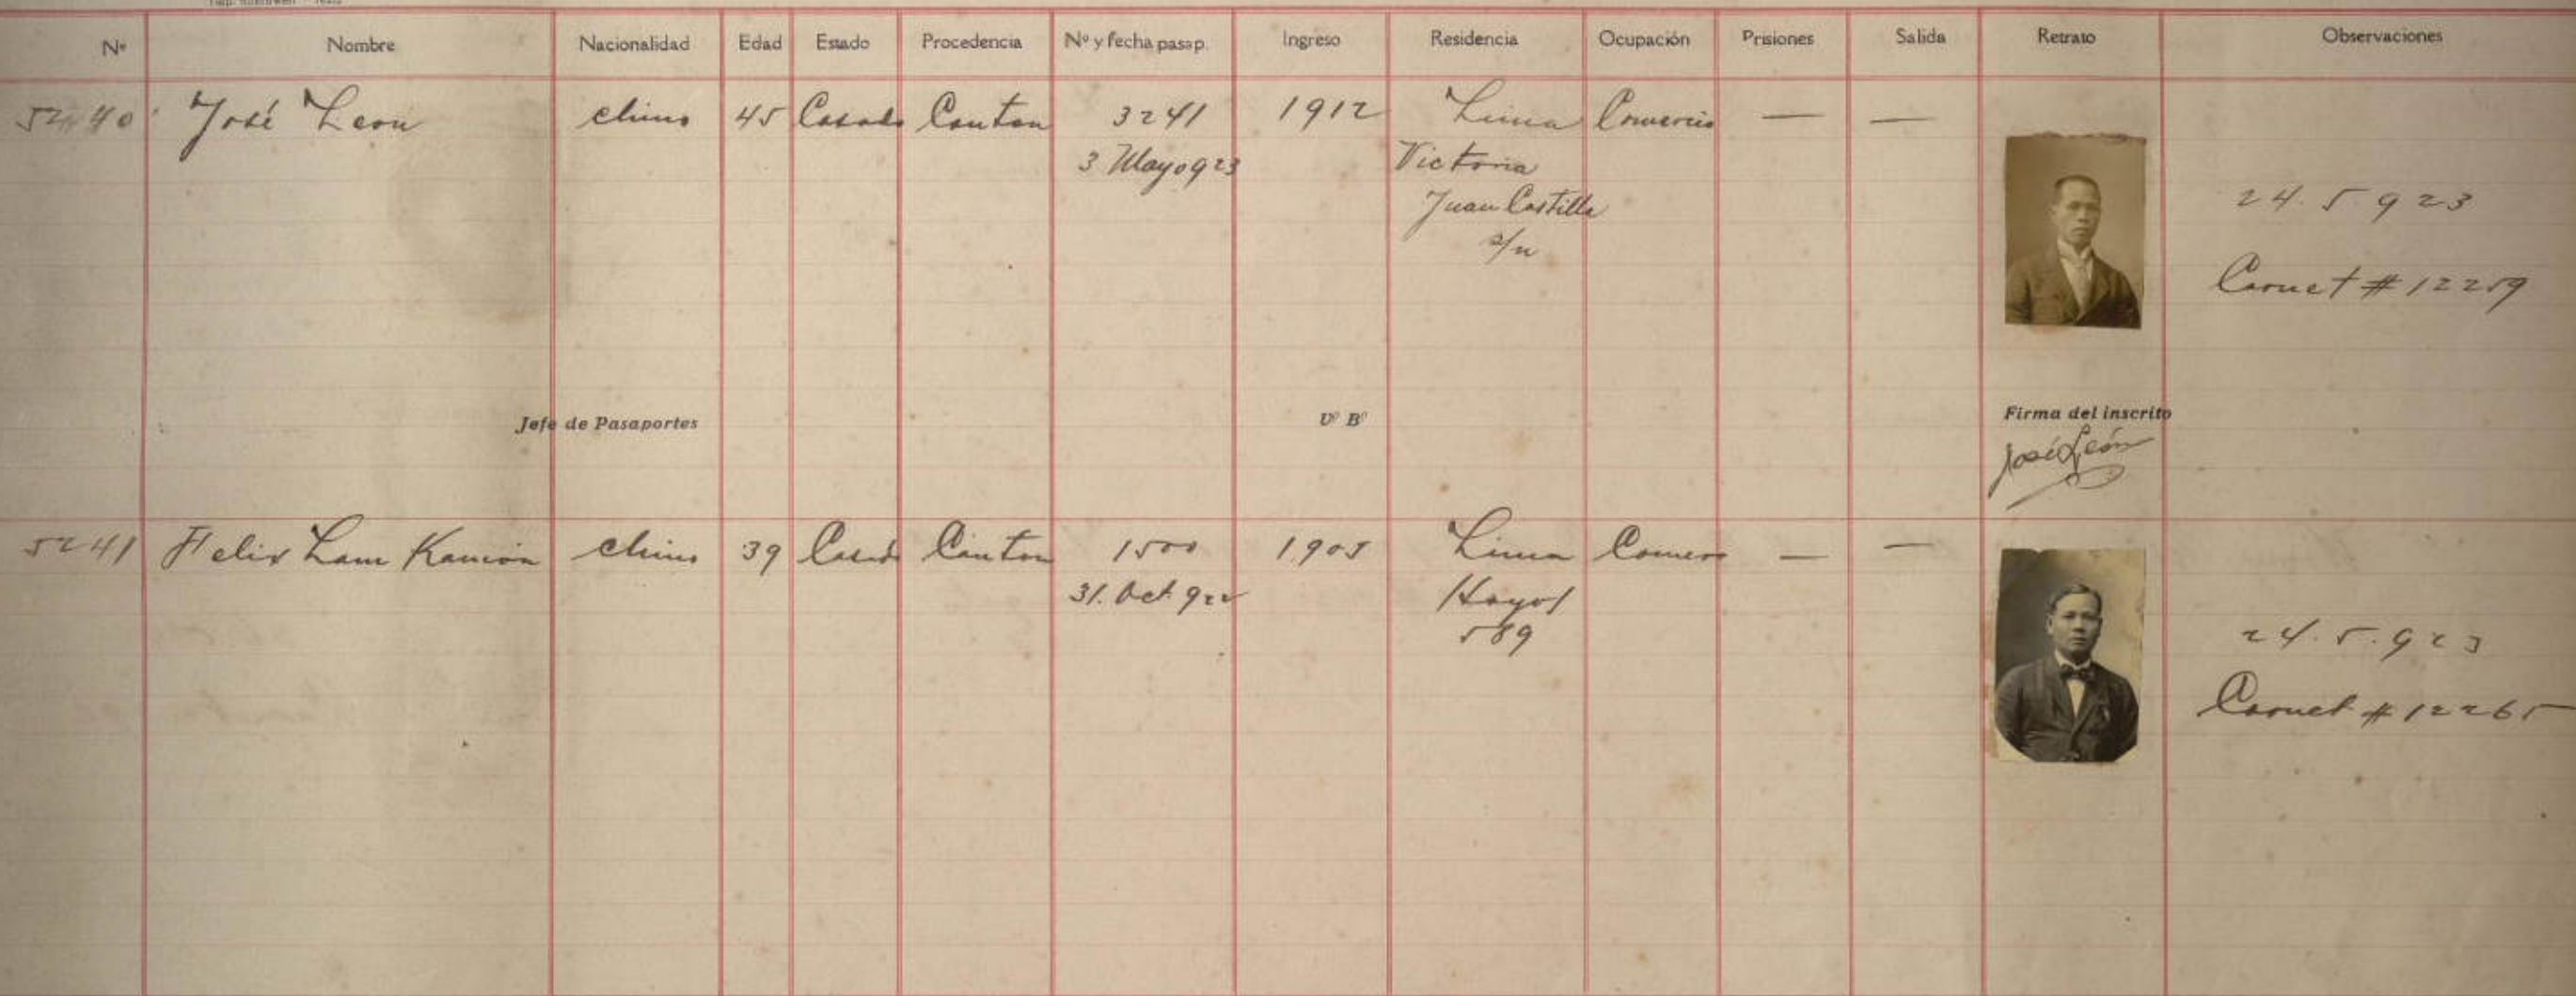 Nº Nombre Nacionalidad Edad Estado Procedencia Nº y fecha pasap. Ingreso Residencia Ocupación Prisiones Salida Retrato Observaciones
5240 José Leon chino 45 Casado Canton 3241 1912 Lima Comercio — —
3 Mayo 923 Victoria
Juan Castilla
s/n
24. 5. 923
Carnet # 12259
Jefe de Pasaportes Vº Bº Firma del inscrito
José León
5241 Felix Lam Kamión chino 39 Casado Canton 1500 1905 Lima Comerc — —
31. Oct. 922
589
24. 5. 923
Carnet # 12265